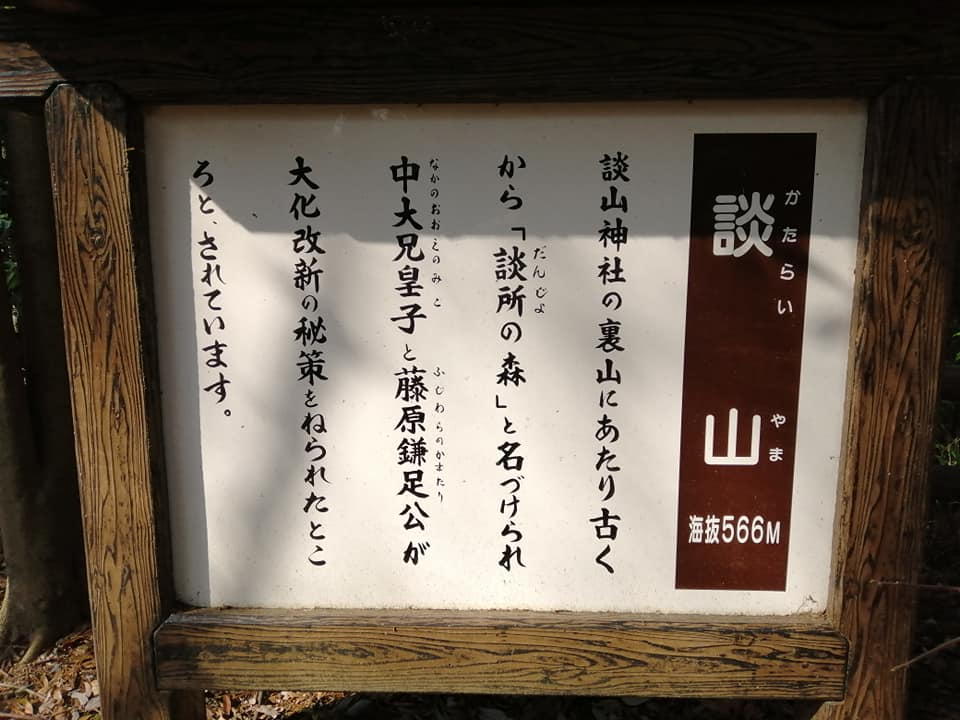 かたらい やま
談山
海抜566M
談山神社の裏山にあたり古く
だんじよ
から「談所の森」と名づけられ
なかのおおえのみこ ふじわらのかまたり
中大兄皇子と藤原鎌足公が
大化改新の秘策をねられたとこ
ろと、されています。